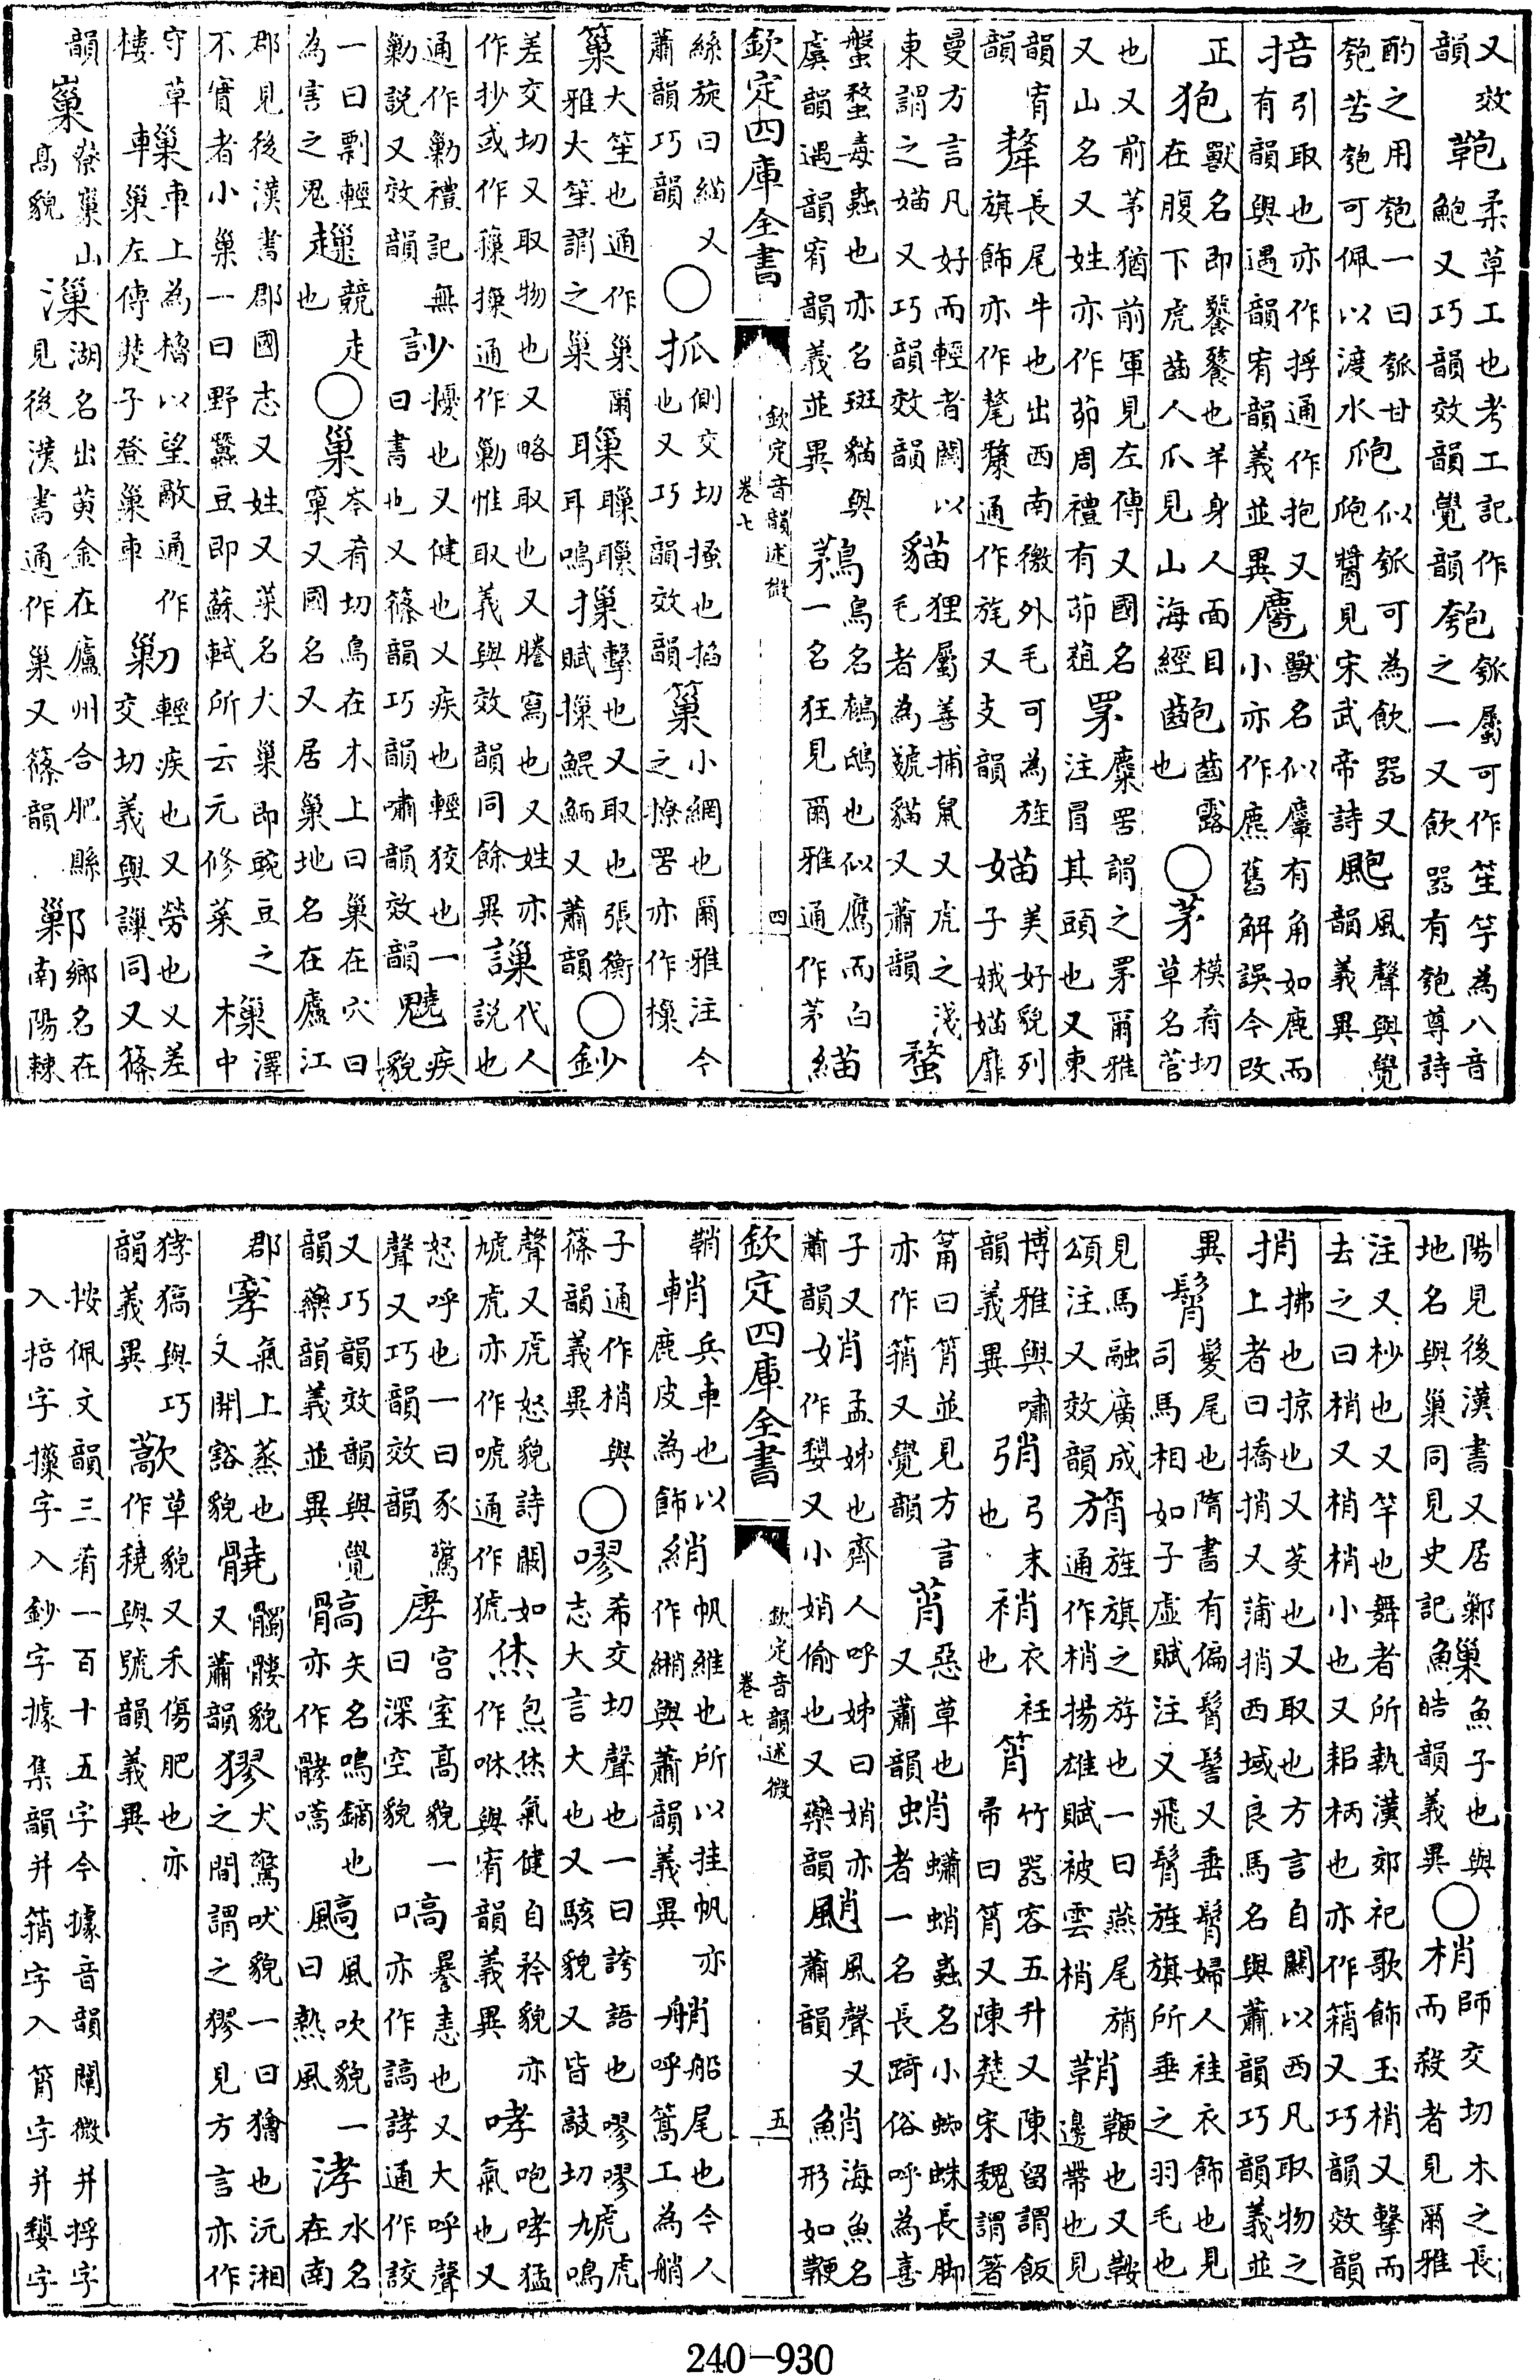 又效韻鞄柔革工也考工記作鮑又巧韻效韻覺韻匏瓠屬可作笙竽為八音之一又飲器有匏尊詩
酌之用匏一曰瓠甘匏苦匏可佩以渡水瓟似瓠可為飲器又瓟醬見宋武帝詩颮風聲與覺韻義異
掊引取也亦作捊通作抱又有韻與遇韻宥韻義並異麅獸名似麞有角如鹿而小亦作麃舊解誤今改
正狍獸名即饕餮也羊身人面目在腹下虎齒人爪見山海經齙齒露也○茅模肴切草名菅
也又前茅猶前軍見左傳又國名又山名又姓亦作茆周禮有茆蒩罞麋罟謂之罞爾雅注冒其頭也又東
韻宥韻犛長尾牛也出西南徼外毛可為旌旗飾亦作氂斄通作旄又支韻媌美好貌列子娥媌靡
曼方言凡好而輕者關以東謂之媌又巧韻效韻貓狸屬善捕鼠又虎之淺毛者為虦貓又蕭韻蝥
盤蝥毒蟲也亦名斑貓與虞韻遇韻宥韻義並異鶜鳥名鵂鴟也似鷹而白一名狂見爾雅通作茅緢
欽定四庫全書 欽定音韻述微 卷七 四
絲旋曰緢又蕭韻巧韻○抓側交切搔也掐也又巧韻效韻罺小網也爾雅注今之撩罟亦作樔
大笙也通作巢爾雅大笙謂之巢耳鳴摷擊也又取也張衡賦摷鯤鮞又蕭韻○鈔
差交切又取物也又略取也又謄寫也又姓亦作抄或作通作勦惟取義與效韻同餘異代人說也
通作勦禮記無勦說又效韻訬擾也又健也又疾也輕狡也一曰書也又篠韻巧韻嘯韻效韻疾貌
一曰剽輕為害之鬼競走也○巢岑肴切鳥在木上曰巢在穴曰窠又國名又居巢地名在廬江
郡見後漢書郡國志又姓又菜名大巢即豌豆之不實者小巢一曰野蠶豆即蘇軾所云元修菜樔澤中
守草樓轈車上為櫓以望敵通作巢左傳楚子登巢車勦輕疾也又勞也又差交切義與同又篠
韻山高貌漅湖名出黃金在廬州合肥縣見後漢書通作巢又篠韻鄛鄉名在南陽棘
陽見後漢書又居鄛地名與巢同見史記魚子也與皓韻義異○梢師交切木之長而殺者見爾雅
注又杪也又竿也舞者所執漢郊祀歌飾玉梢又擊而去之曰梢又梢梢小也又耜柄也亦作箾又巧韻效韻
捎拂也掠也又芟也又取也方言自關以西凡取物之上者曰撟捎又蒲捎西域良馬名與蕭韻巧韻義並
異髾髮尾也隋書有偏髾髻又垂髾婦人袿衣飾也見司馬相如子虛賦注又飛髾旌旗所垂之羽毛也
見馬融廣成頌注又效韻旓旌旗之游也一曰燕尾旓通作梢揚雄賦被雲梢鞘鞭也又鞍邊帶也見
博雅與嘯韻義異弰弓末也䘯衣衽也筲竹器容五升又陳留謂飯帚曰筲又陳楚宋魏謂箸
筩曰筲並見方言亦作又覺韻莦惡草也又蕭韻蛸蠨蛸蟲名小蜘蛛長脚者一名長踦俗呼為喜
子又蕭韻娋孟姊也齊人呼姊曰娋亦作又小娋偷也又藥韻颵風聲又蕭韻鮹海魚名形如鞭
欽定四庫全書 欽定音韻述微 卷七 五
鞘䡟兵車也以鹿皮為飾綃帆維也所以挂帆亦作與蕭韻義異艄船尾也今人呼篙工為艄
子通作梢與篠韻義異○嘐希交切聲也一曰誇語也嘐嘐志大言大也又駭貌又皆敲切虓虎鳴
聲又虎怒貌詩闞如虓虎亦作唬通作猇烋炰烋氣健自矜貌亦作咻與宥韻義異哮咆哮猛氣也又
怒呼也一曰豕驚聲又巧韻效韻庨宮室高貌一曰深空貌嗃謈恚也又大呼聲亦作謞誟通作詨
又巧韻效韻與覺韻藥韻義並異髇矢名鳴鏑也亦作嚆風吹貌一曰熱風涍水名在南
郡窙氣上蒸也又開豁貌髐髑髏貌又蕭韻㺒犬驚吠貌一曰獪也沅湘之間謂之㺒見方言亦作
與巧韻義異藃草貌又禾傷肥也亦作穘與號韻義異
按佩文韻三肴一百十五字今據音韻闡微并捊字入掊字字入鈔字據集韻并箾字入筲字并字
240-930